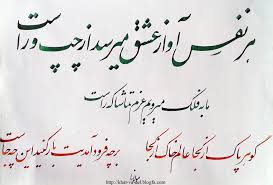 هر نفس آواز عشق میرسد از چپ و راست
ما به فلک میرویم عزم تماشا که راست
گوهر پاک از کجا عالم خاک از کجا برچه فرود آمدیت بارکنید این چه جاست
مولانا